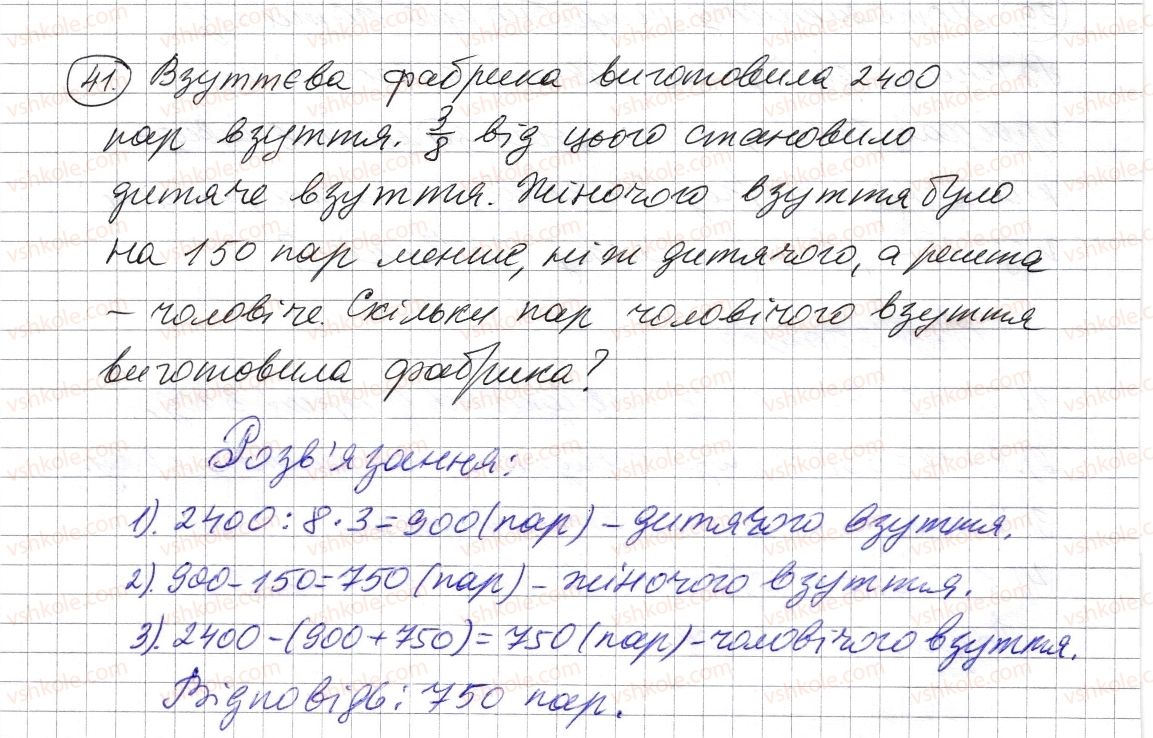 41. Взуттєва фабрика виготовила 2400
пар взуття. 3/8 від цього становило
дитяче взуття. Жіночого взуття було
на 150 пар менше, ніж дитячого, а решта
– чоловіче. Скільки пар чоловічого взуття
виготовила фабрика?
Розв'язання:
1). 2400 : 8 · 3 = 900 (пар) – дитячого взуття.
2). 900 – 150 = 750 (пар) – жіночого взуття.
3). 2400 – (900 + 750) = 750 (пар) – чоловічого взуття.
Відповідь: 750 пар.